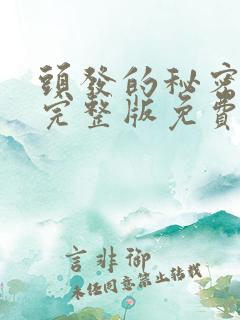 頭發的秘密
完整版免費
言非御
未經同意禁止轉載